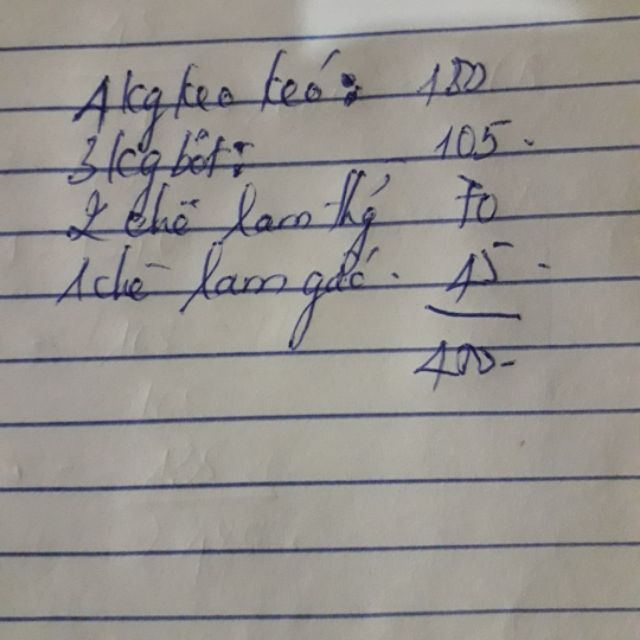 4kg keo keó: 180
3kg bột: 105.
2 chè lam 70
1 chè lam gấc. 45.
400-